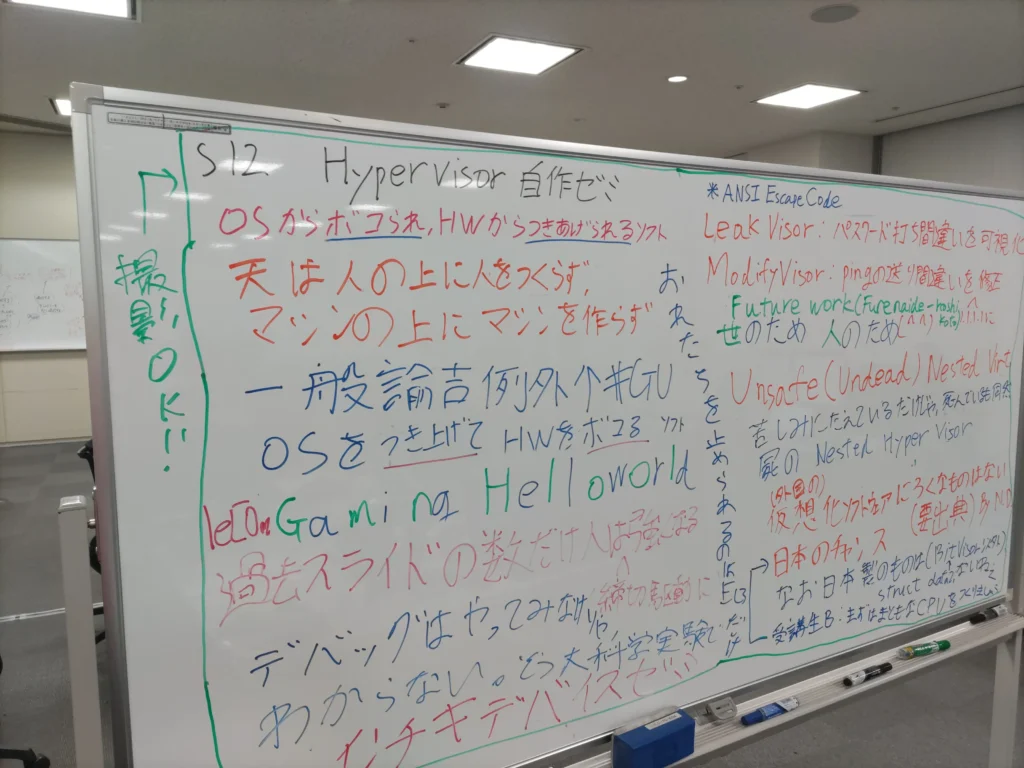 撮影OK!!
S12 Hypervisor 自作ゼミ
OSからボコられ,HWからつきあげられるソフト
天は人の上に人をつくらず,
マシンの上にマシンを作らず
一般論吉例外个#GU
OSをうき上げて HWをボコる ソフト
Gaming Helloworld
過去スライドの数だけ人は強くなる
締切駆動に
デバッグはやってみなけりゃ,
わからない。どう大科学実験で
だけ
インチキデバイスゼミ
おれたちを止められるのは
*ANSI Escape Code
Leak Visor: パスワード打ち間違いを可視化
ModifyVisor: pingの送り間違いを修正
Future work (Furenaide-hoshii
世のため 人のため
Unsafe (Undead) Nested Virt
苦しみにたえているだけじゃ,死んでいる
屍の Nested Hyper Visor
(外国の)
仮想化ソフトウェアにろくなものはない
(要出典)
日本のチャンス
なお日本製のものは (BitVisor
struct data
受講生B:まずはまともなCPUを